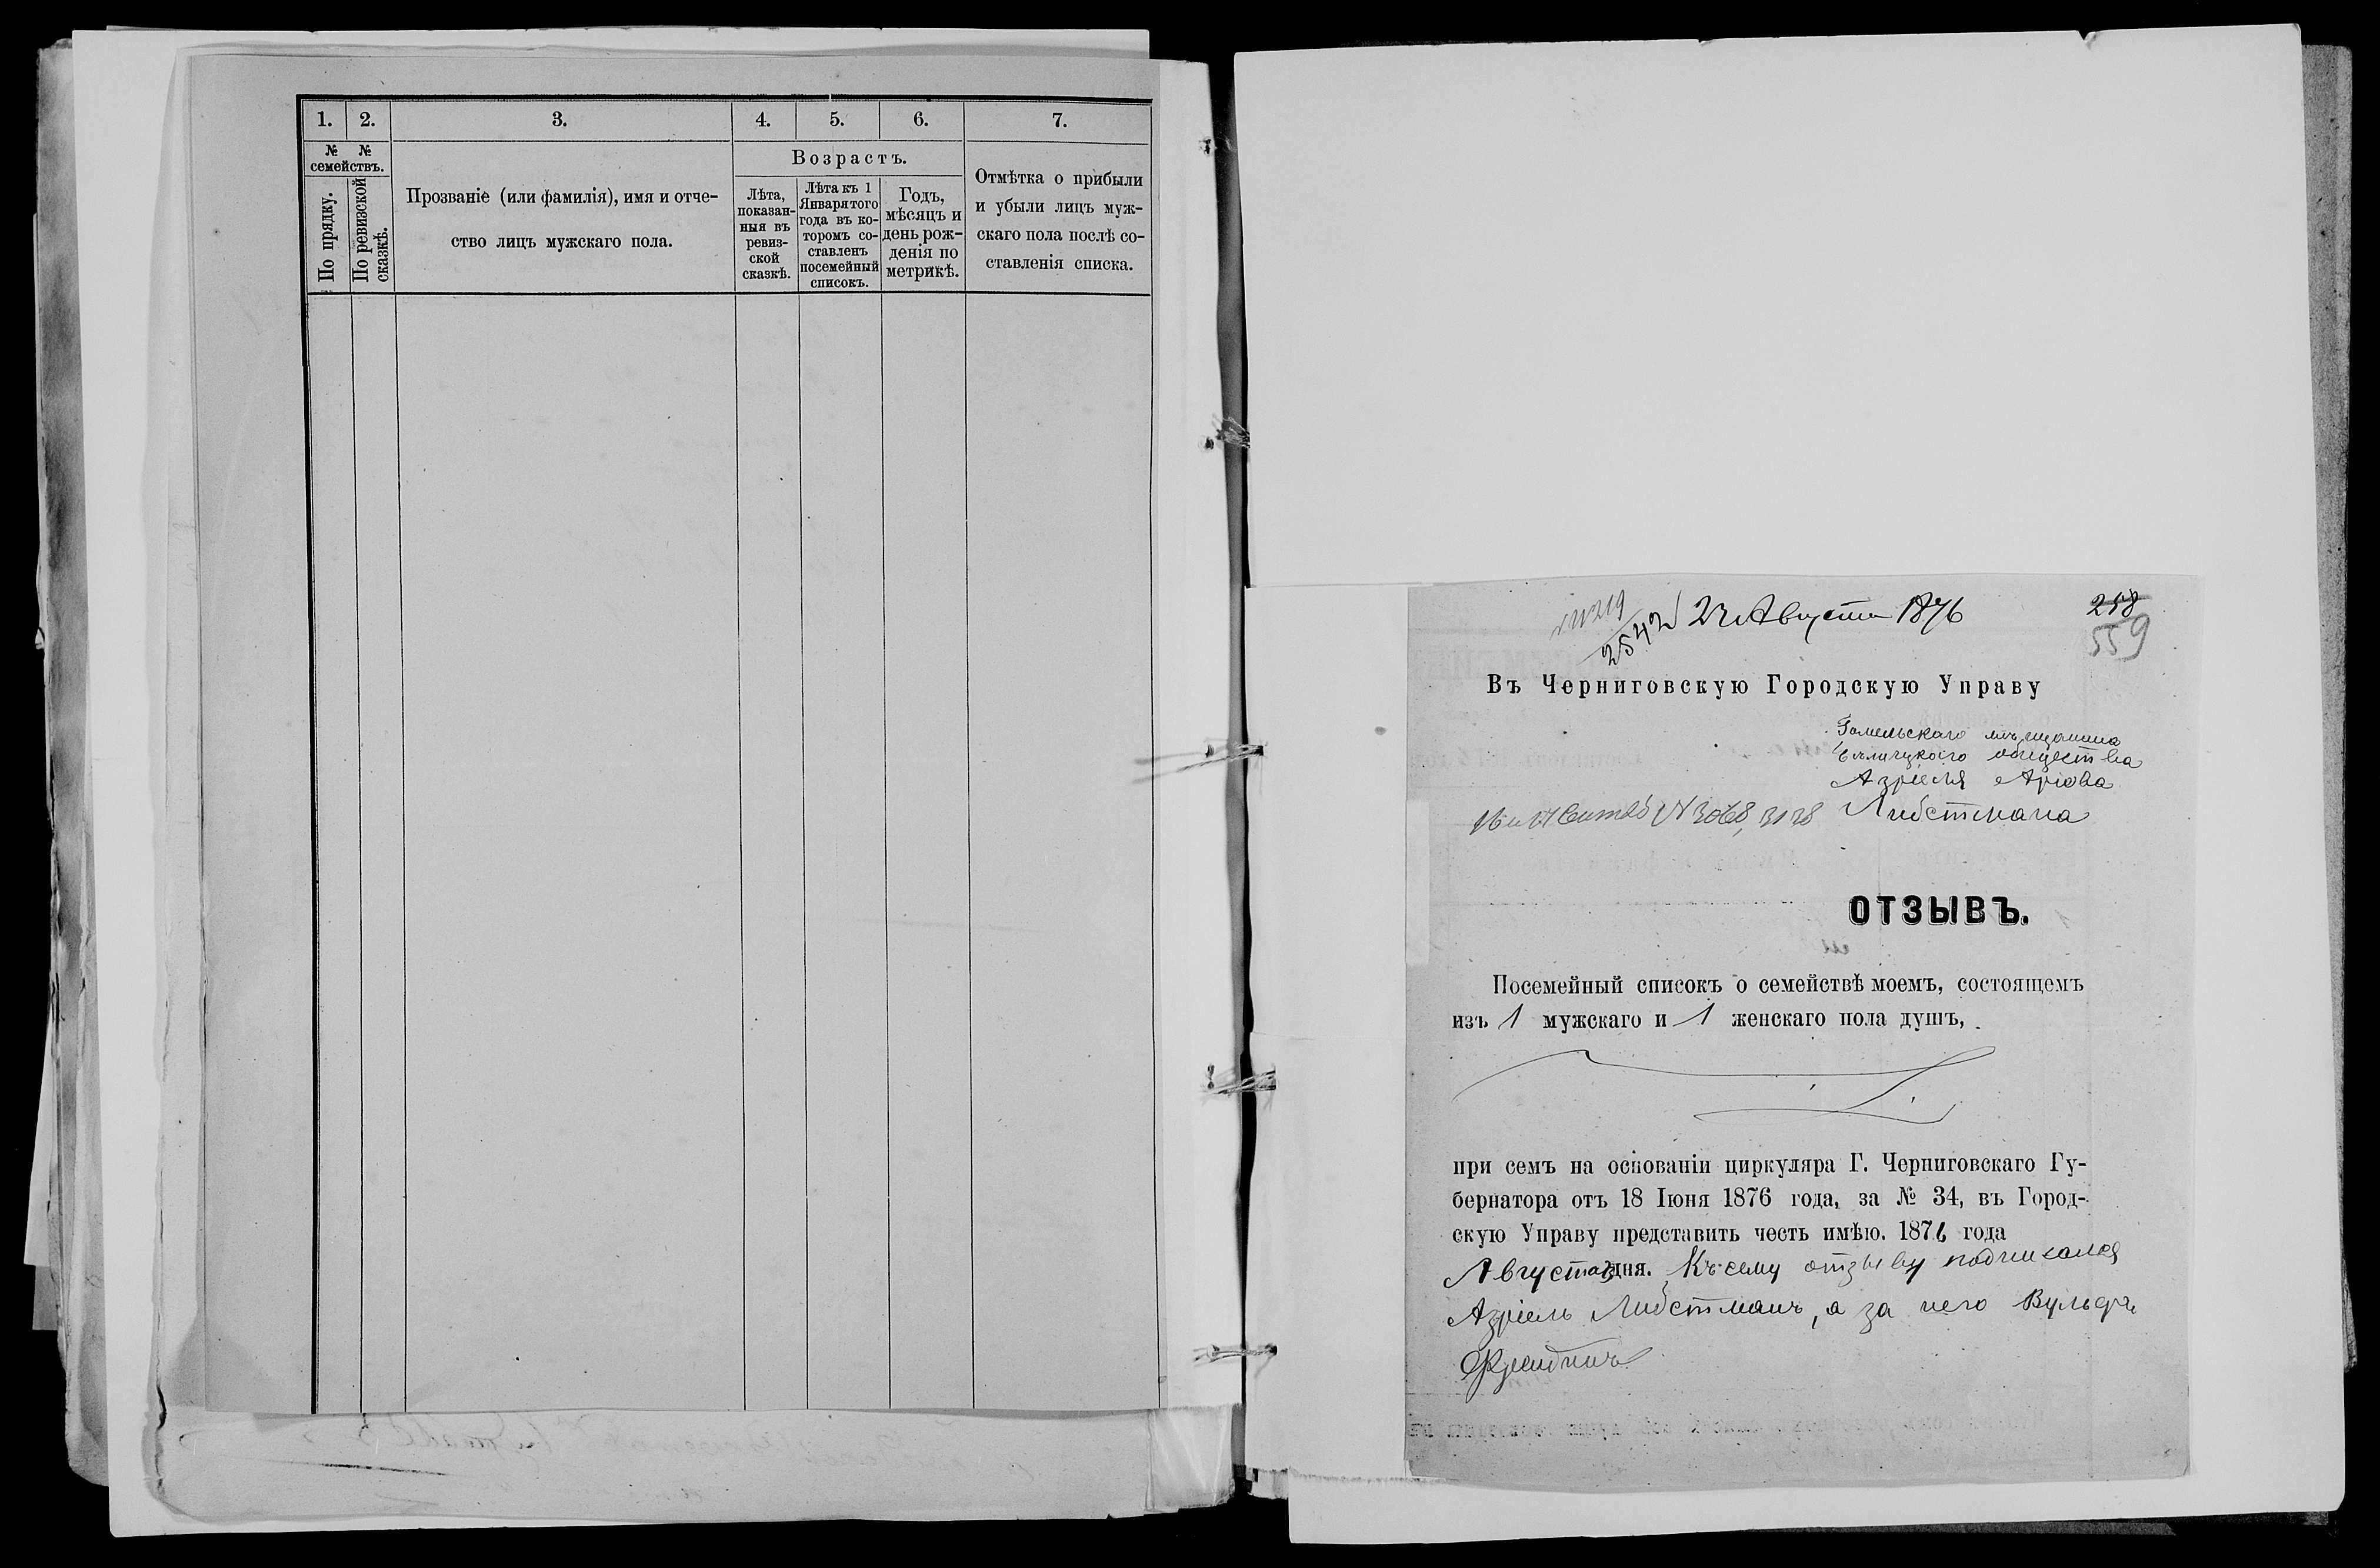 1. 2. 3. 4. 5. 6. 7.
№ №
семействъ.
По прядку.
По ревизской
сказкѣ.
Прозваніе (или фамилія), имя и отче-
ство лицъ мужскаго пола.
Возрастъ.
Лѣта,
показан-
ныя въ
ревиз-
ской
сказкѣ.
Лѣта къ 1
Января того
года въ ко-
торомъ со-
ставленъ
посемейный
списокъ.
Годъ,
мѣсяцъ и
день рож-
денія по
метрикѣ.
Отмѣтка о прибыли
и убыли лицъ муж-
скаго пола послѣ со-
ставленія списка.
2542 Августа 1876
258
559
Въ Черниговскую Городскую Управу
Гомельскаго мѣщанина
общества
Азріеля Аріова
Либстмана
№ 3068, 3138
ОТЗЫВЪ.
Посемейный списокъ о семействѣ моемъ, состоящемъ
изъ 1 мужскаго и 1 женскаго пола душъ,
при семъ на основаніи циркуляра Г. Черниговскаго Гу-
бернатора отъ 18 Іюня 1876 года, за № 34, въ Город-
скую Управу представить честь имѣю. 1876 года
Августа дня. Къ сему отзыву подписался
Азріель Либстманъ, а за него Вульфъ